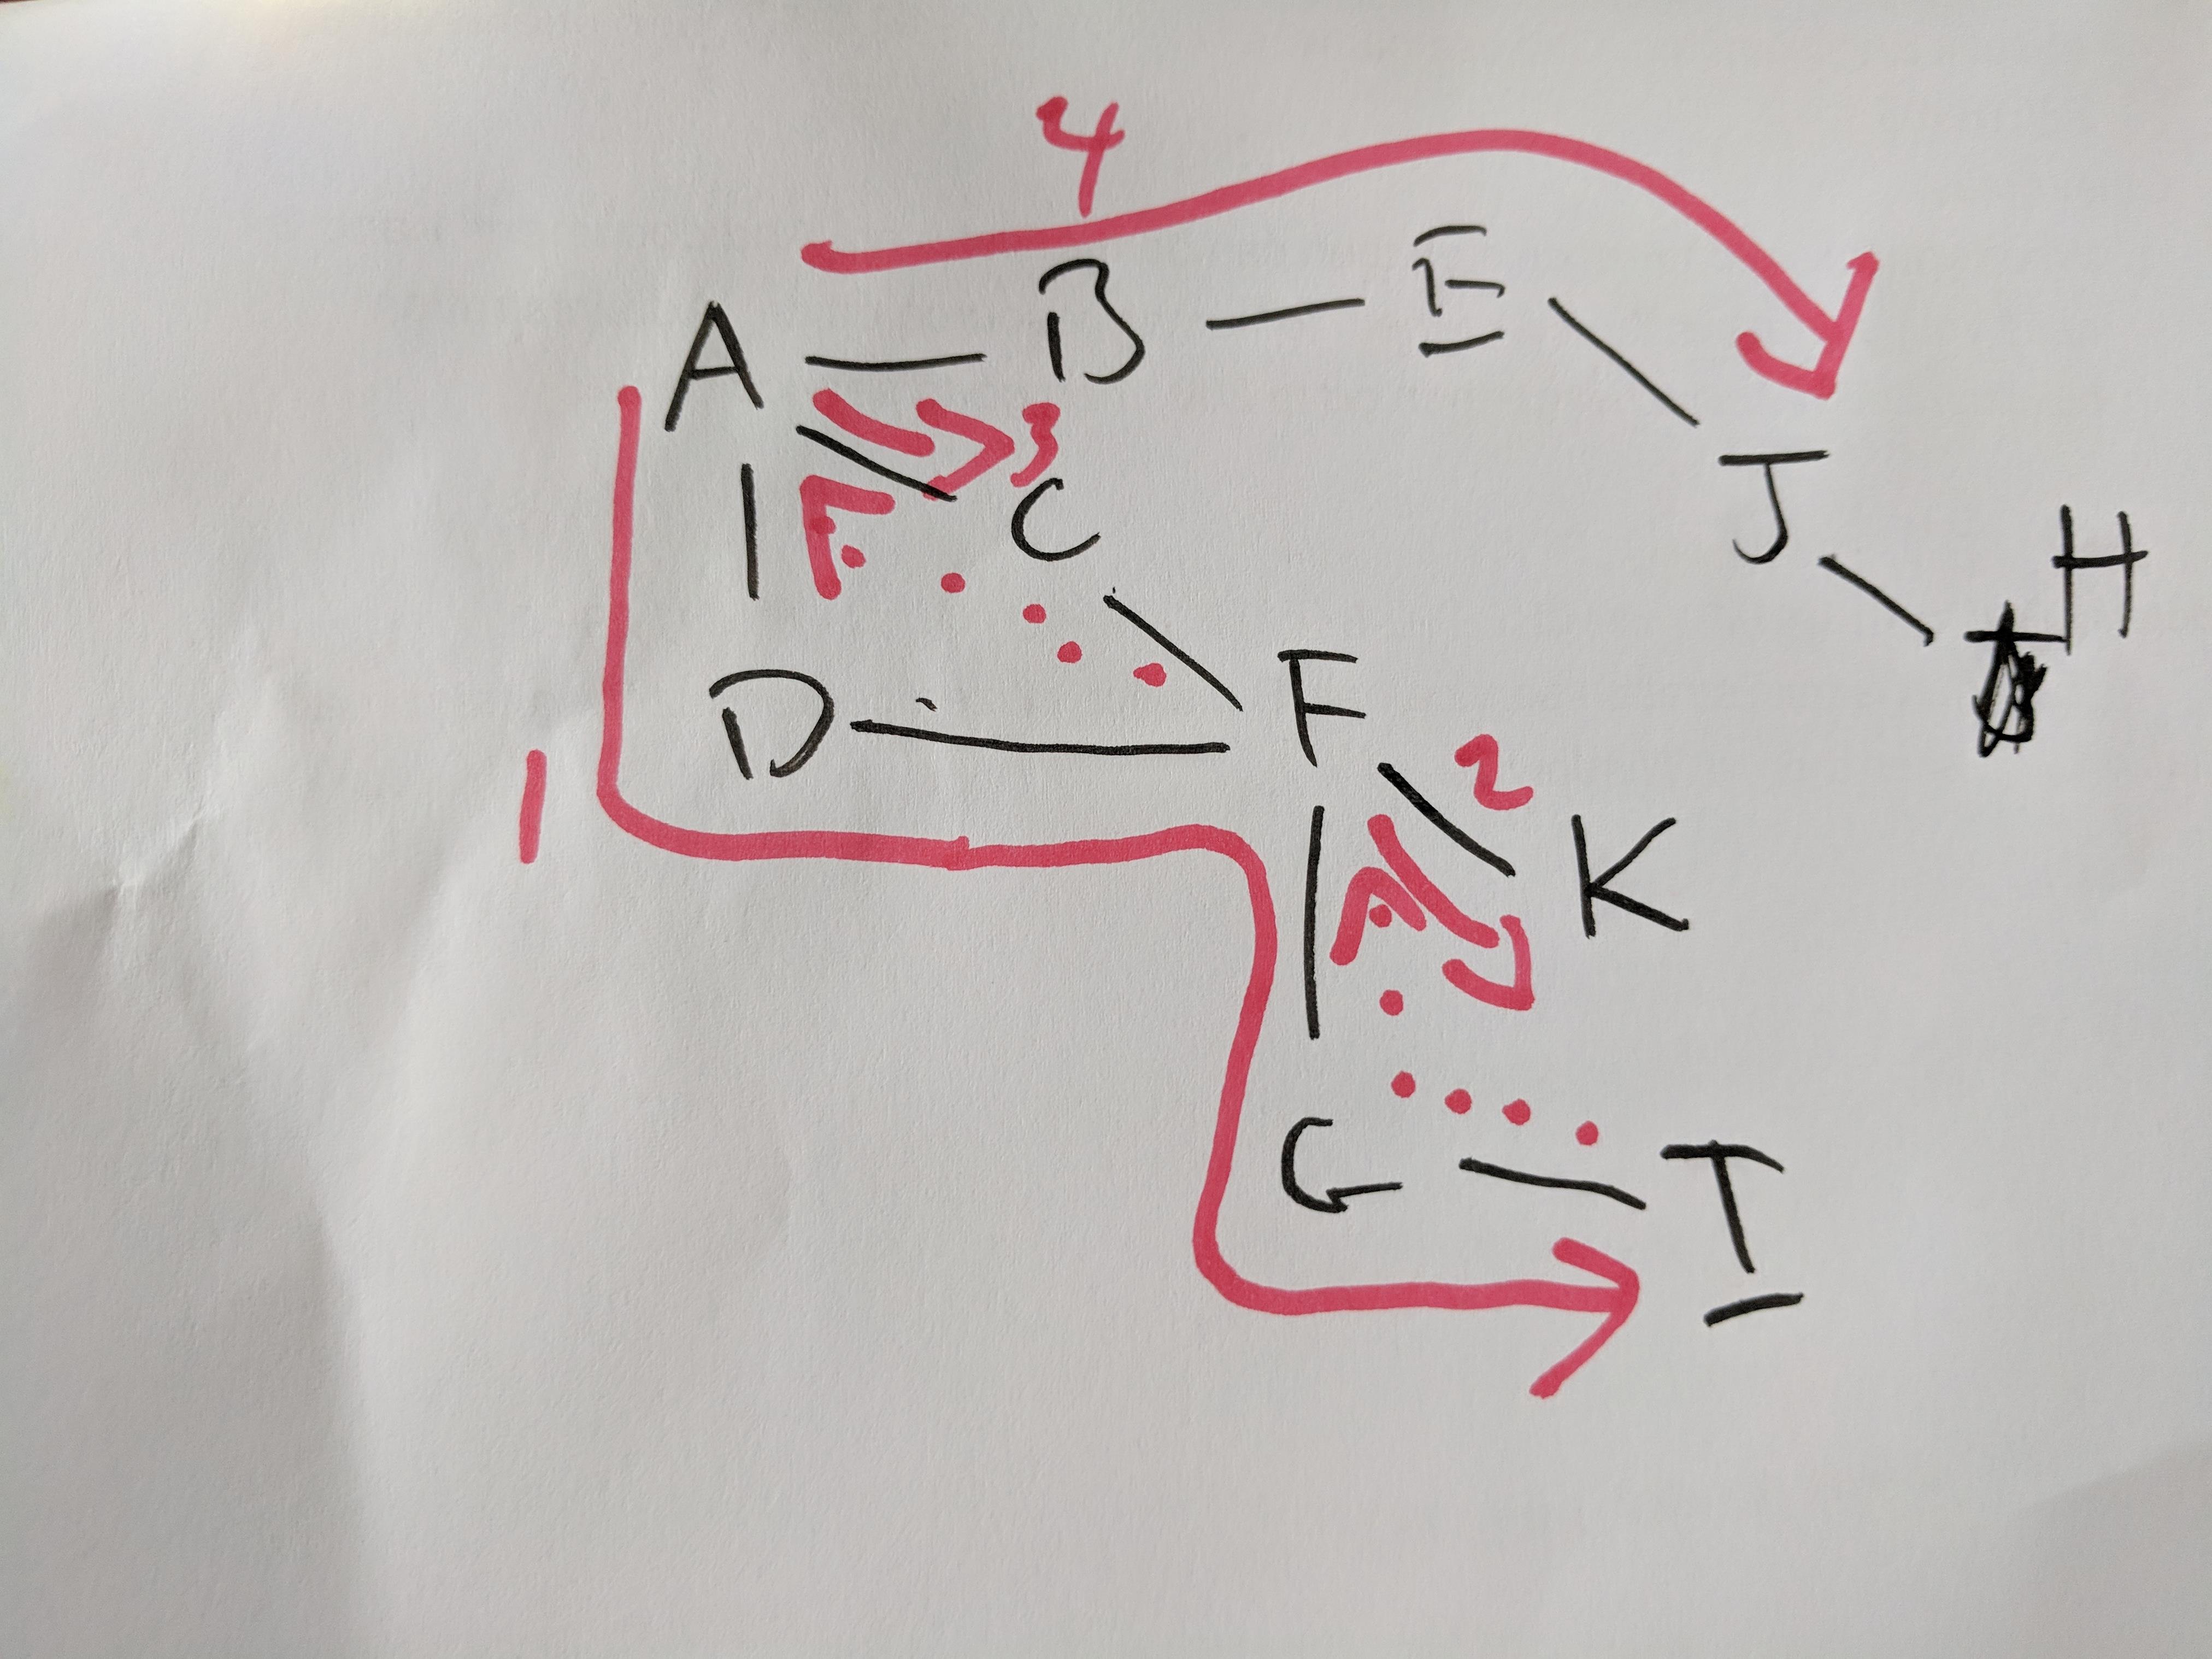 4
A B E
3
C J
H
D F
1 2
K
G I